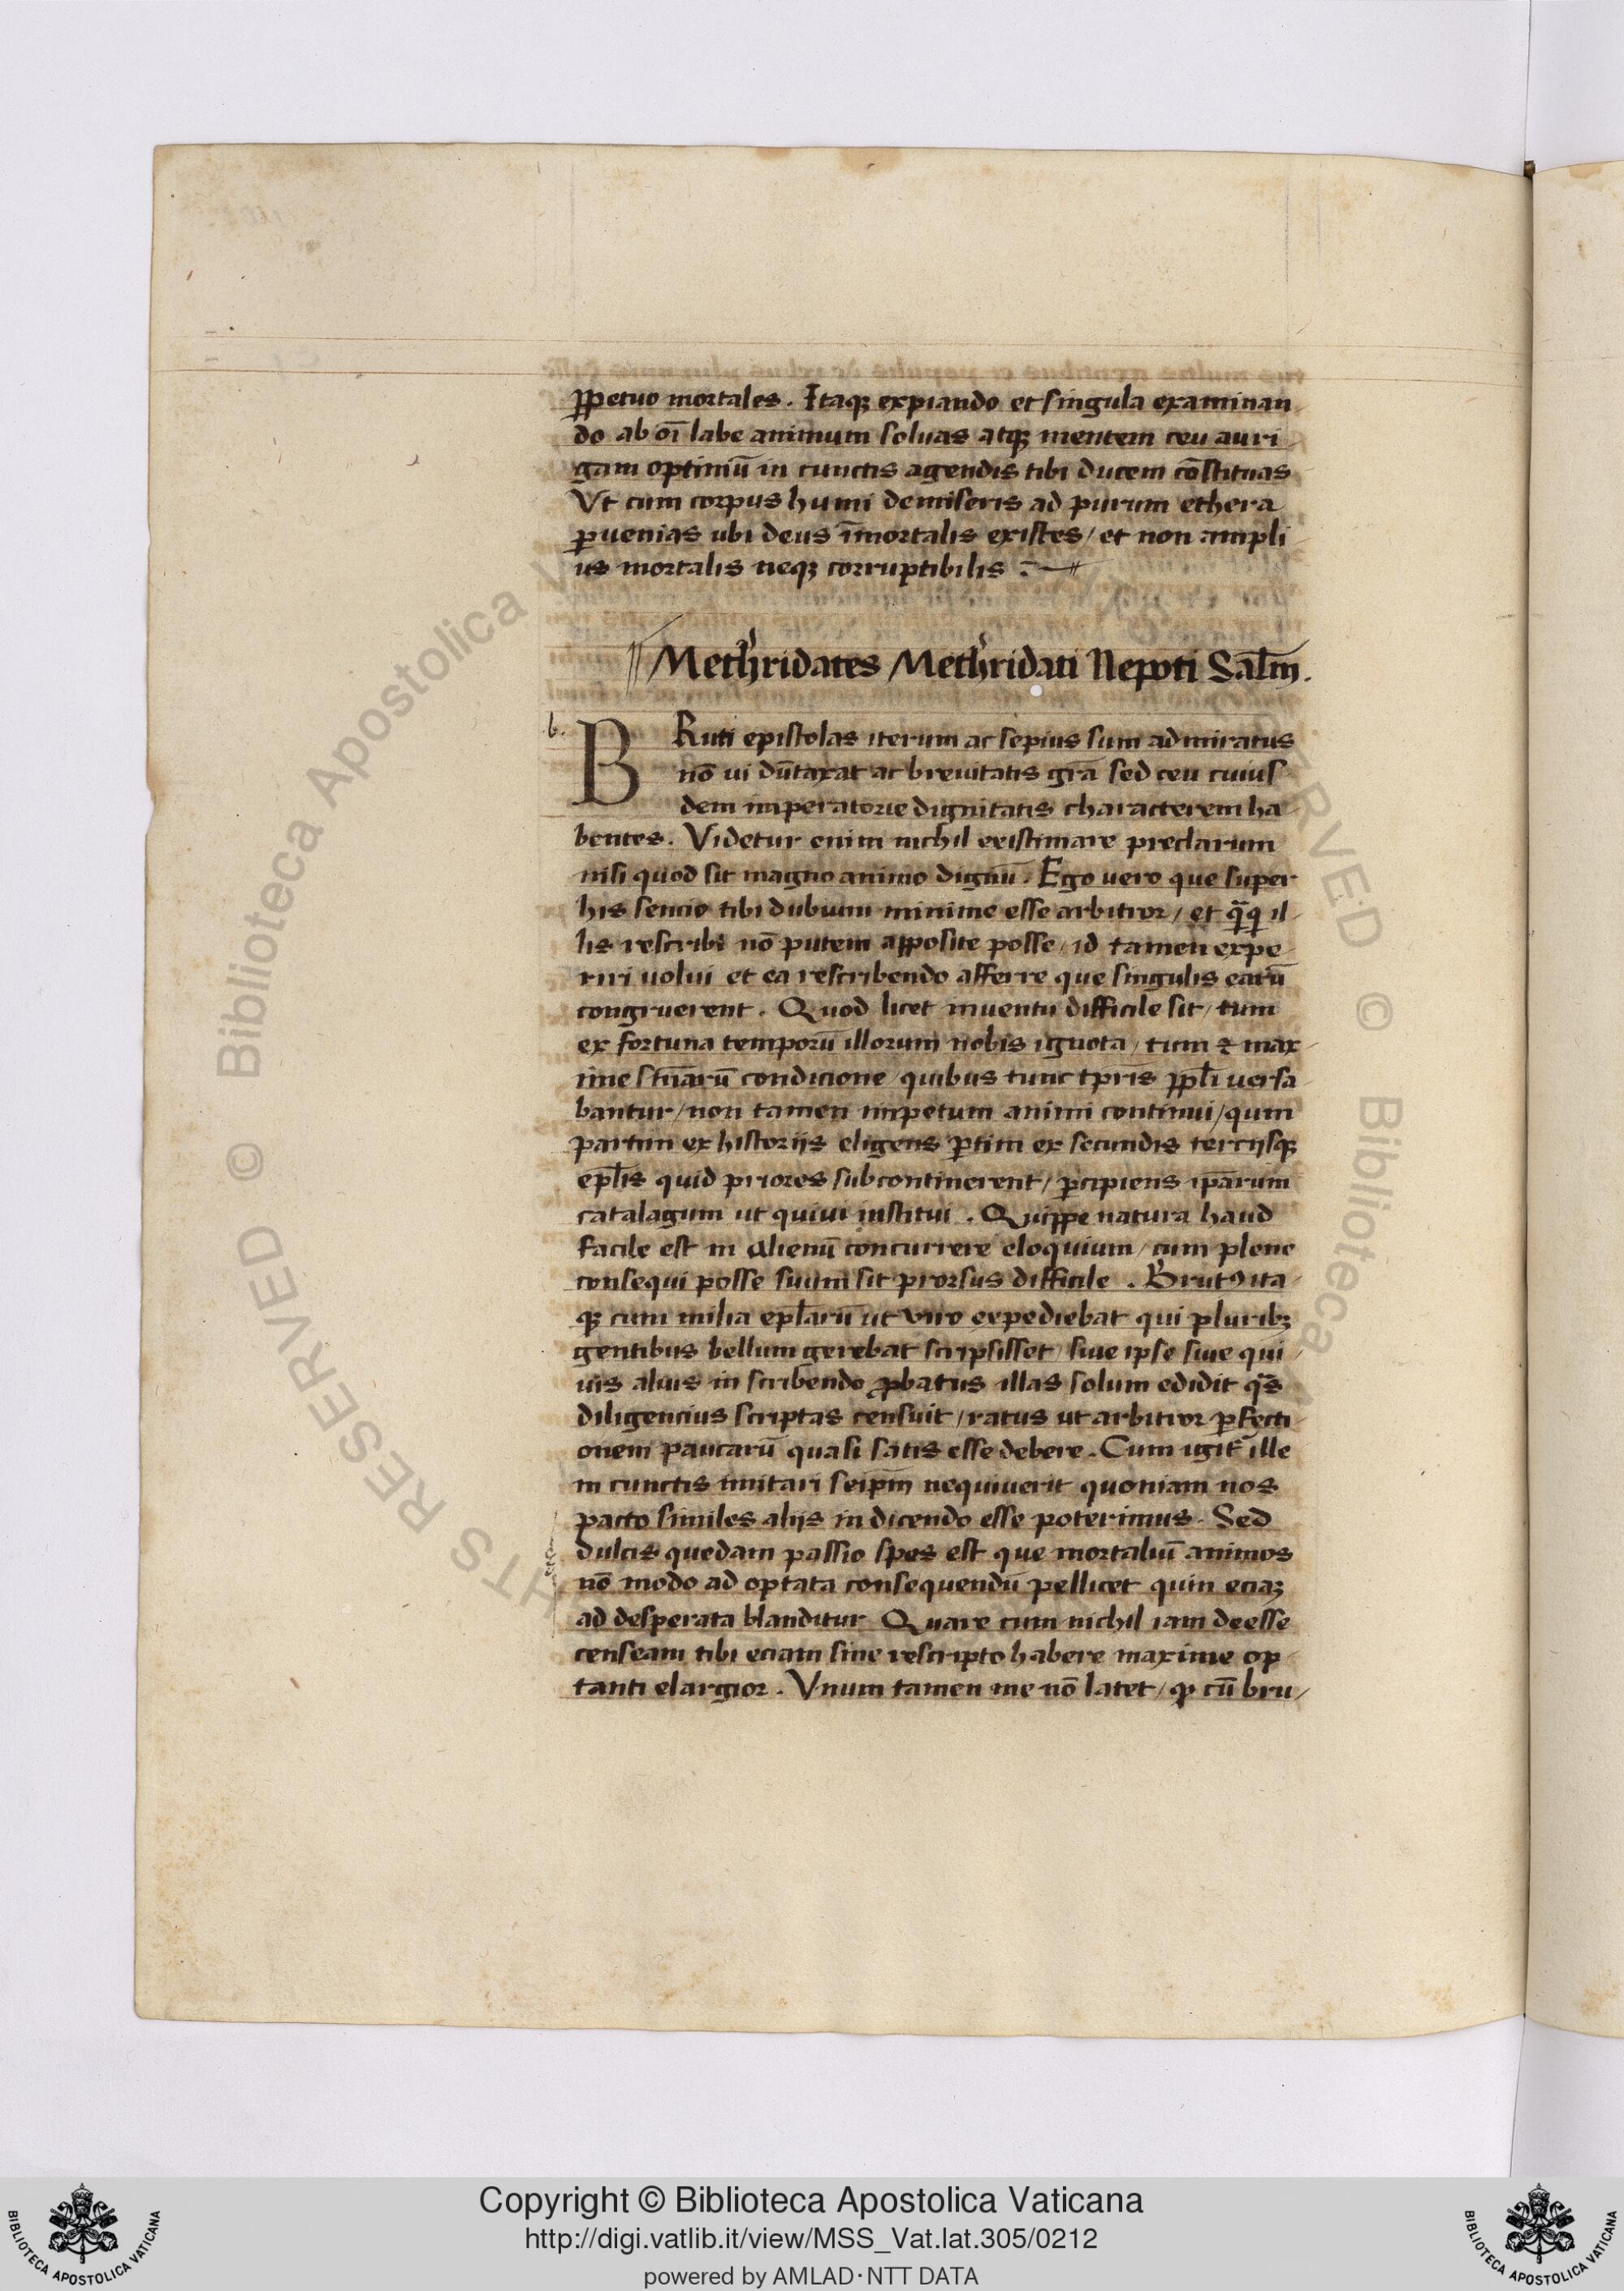 ꝑpetuo mortales. Itaqꝫ expiando et singula examinan
do ab oī labe animum soluas atqꝫ mentem ceu auri
gam optimū in cunctis agendis tibi ducem cōstituas
Vt cum corpus humi demiseris ad purum ethera
ꝑuenias ubi deus īmortalis existes / et non ampli
us mortalis neqꝫ corruptibilis :
Methridates Methridati Nepoti Saƚm.
b.
BRuti epistolas iterum ac sepius sum admiratus
nō ui dūtaxat ac breuitatis grā sed ceu cuius
dem imperatorie dignitatis characterem ha
bentes. Videtur enim nichil existimare preclarum
nisi quod sit magno animo dignū. Ego uero que super
his sencio tibi dubium minime esse arbitror / et qͣqͣ il
lis rescribi nō putem apposite posse / id tamen expe
riri uolui et ea rescribendo afferre que singulis earū
congruerent. Quod licet inuentu difficile sit / tum
ex fortuna temporū illorum nobis ignota / tum ⁊ max
ime sniārū condicione / quibus tunc tꝑris ppƚi uersa
bantur / non tamen impetum animi continui / qum
partim ex historijs eligens ꝑtim ex secundis tercijsqꝫ
epƚis quid priores subcontinerent / ꝑcipiens ip̄arum
catalagum ut quiui institui. Quippe natura haud
facile est in alienū concurrere eloquium / cum plene
consequi posse suum sit prorsus difficile. Brutꝯ ita
qꝫ cum milia epƚarū ut viro expediebat qui pluribꝫ
gentibus bellum gerebat scripsisset / siue ipse siue qui
uis alius in scribendo ꝓbatus illas solum edidit qͣs
diligencius scriptas censuit / ratus ut arbitror ꝑfecti
onem paucarū quasi satis esse debere. Cum igit̉ ille
in cunctis imitari seip̄m nequiuerit quoniam nos
pacto similes alijs in dicendo esse poterimus. Sed
dulcis quedam passio spes est que mortaliū animos
nō modo ad optata consequendū pellicet quin eciaꝫ
ad desperata blanditur Quare cum nichil iam deesse
censeam tibi eciam sine rescripto habere maxime op
tanti elargior. Vnum tamen me nō latet / ꝙ cū bru/
Copyright © Biblioteca Apostolica Vaticana
http://digi.vatlib.it/view/MSS_Vat.lat.305/0212
powered by AMLAD·NTT DATA
BIBLIOTECA APOSTOLICA VATICANA
BIBLIOTECA APOSTOLICA VATICANA